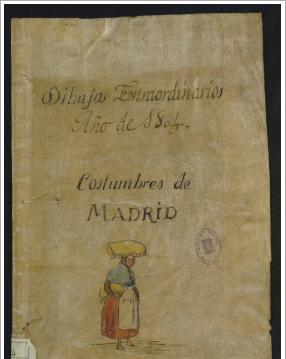 Dibujos Extraordinarios
Año de 1804.
Costumbres de
MADRID